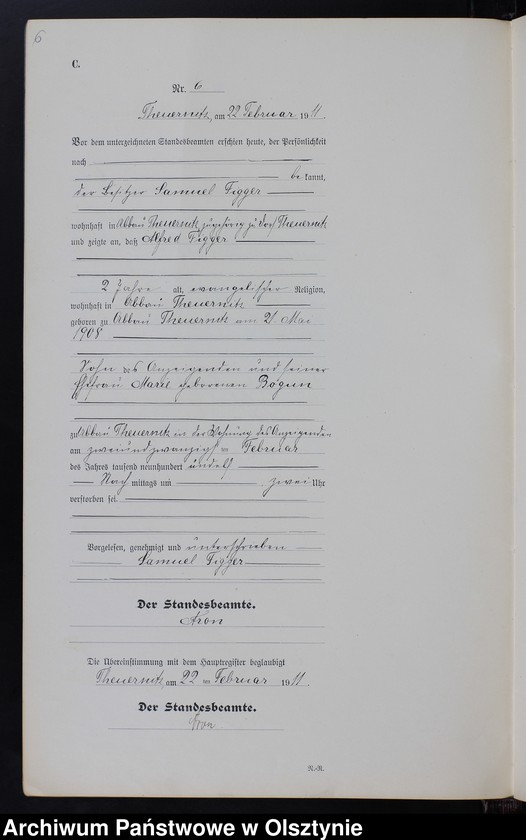 6
C.
Nr. 6
Theuernitz, am 22 Februar 1911.
Vor dem unterzeichneten Standesbeamten erschien heute, der Persönlichkeit
nach
be kannt,
der Besitzer Samuel Figger
wohnhaft in Abbau Theuernitz zugehörig zu Dorf Theuernitz
und zeigte an, daß Alfred Figger
2 Jahre alt, evangelischer Religion,
wohnhaft in Abbau Theuernitz
geboren zu Abbau Theuernitz am 21. Mai
1908
Sohn des Anzeigenden und seiner
Ehefrau Marie geborenen Bogun
zu Abbau Theuernitz in der Wohnung des Anzeigenden
am zweiundzwanzigsten Februar
des Jahres tausend neunhundert und elf
Nach mittags um zwei Uhr
verstorben sei.
Vorgelesen, genehmigt und unterschrieben
Samuel Figger
Der Standesbeamte.
Kron
Die Übereinstimmung mit dem Hauptregister beglaubigt
Theuernitz am 22 ten Februar 1911.
Der Standesbeamte.
Kron
R.-R.
Archiwum Państwowe w Olsztynie